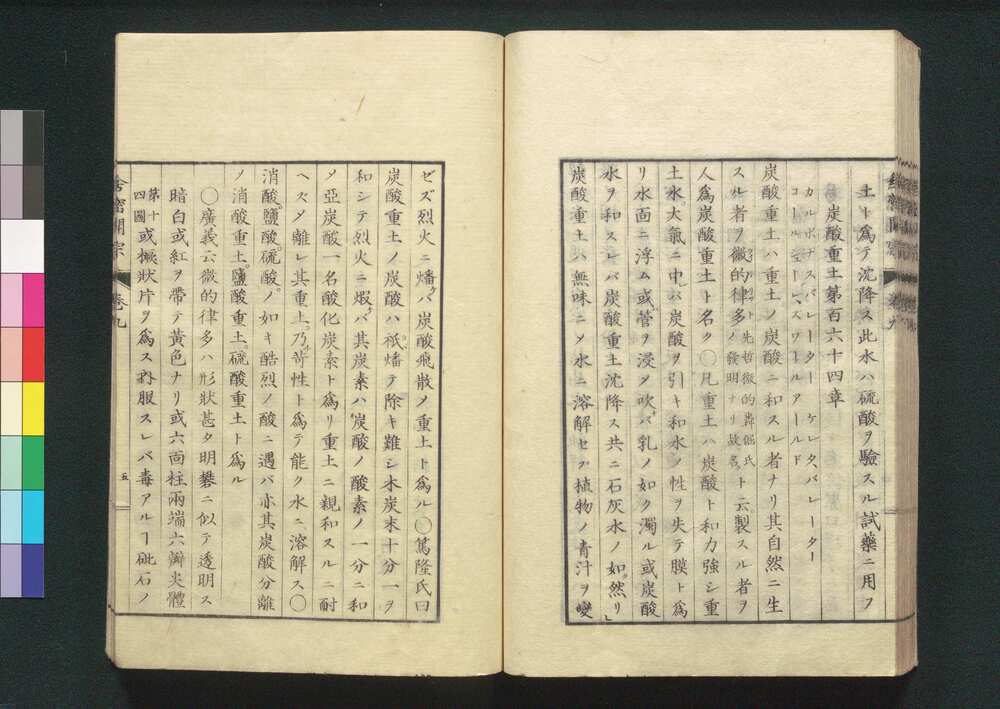 土ト爲テ沈降ス此水ハ硫酸ヲ驗スル試藥ニ用フ
炭酸重土第百六十四章
カルボナスバレーター ケレイタバレーター
コールシュールスワールアールド
炭酸重土ハ重土ノ炭酸ニ和スル者ナリ其自然ニ生
スル者ヲ微的律多ト先哲微的ノ發明ナリ故名クト云製スル者ヲ
人爲炭酸重土ト名ク〇凡重土ハ炭酸ト和力強シ重
土水大氣ニ中レバ炭酸ヲ引キ和水ノ性ヲ失テ膜ト爲
リ水面ニ浮ム或菅ヲ浸ヲ吹バ乳ノ如ク濁ル或炭酸
水ヲ和スレバ炭酸重土沈降ス共ニ石灰水ノ如然リ
炭酸重土ハ無味ニメ水ニ溶解セズ植物ノ青汁ヲ變
ゼズ烈火ニ燔ケバ炭酸飛散メ重土ト爲ル〇篤隆氏曰
炭酸重土ノ炭酸ハ祇燔テ除キ難シ木炭末十分一ヲ
和シテ烈火ニ煆バ其炭素ハ炭酸ノ酸素ノ一分ニ和
メ亞炭酸一名酸化炭素ト爲リ重土ニ親和スルニ耐
ヘズメ離レ其重土乃苛性ト爲テ能ク水ニ溶解ス〇
消酸鹽酸硫酸ノ如キ酷烈ノ酸ニ遇バ亦其炭酸分離
ノ消酸重土鹽酸重土硫酸重土ト爲ル
〇廣義云微的律多ハ形狀甚タ明礬ニ似テ透明ス
暗白或紅ヲ帶テ黃色ナリ或六面柱兩端六瓣尖體
第十四圖或撅狀片ヲ爲ス內服スレバ毒アルヿ砒石ノ
舍密開宗 卷九 五